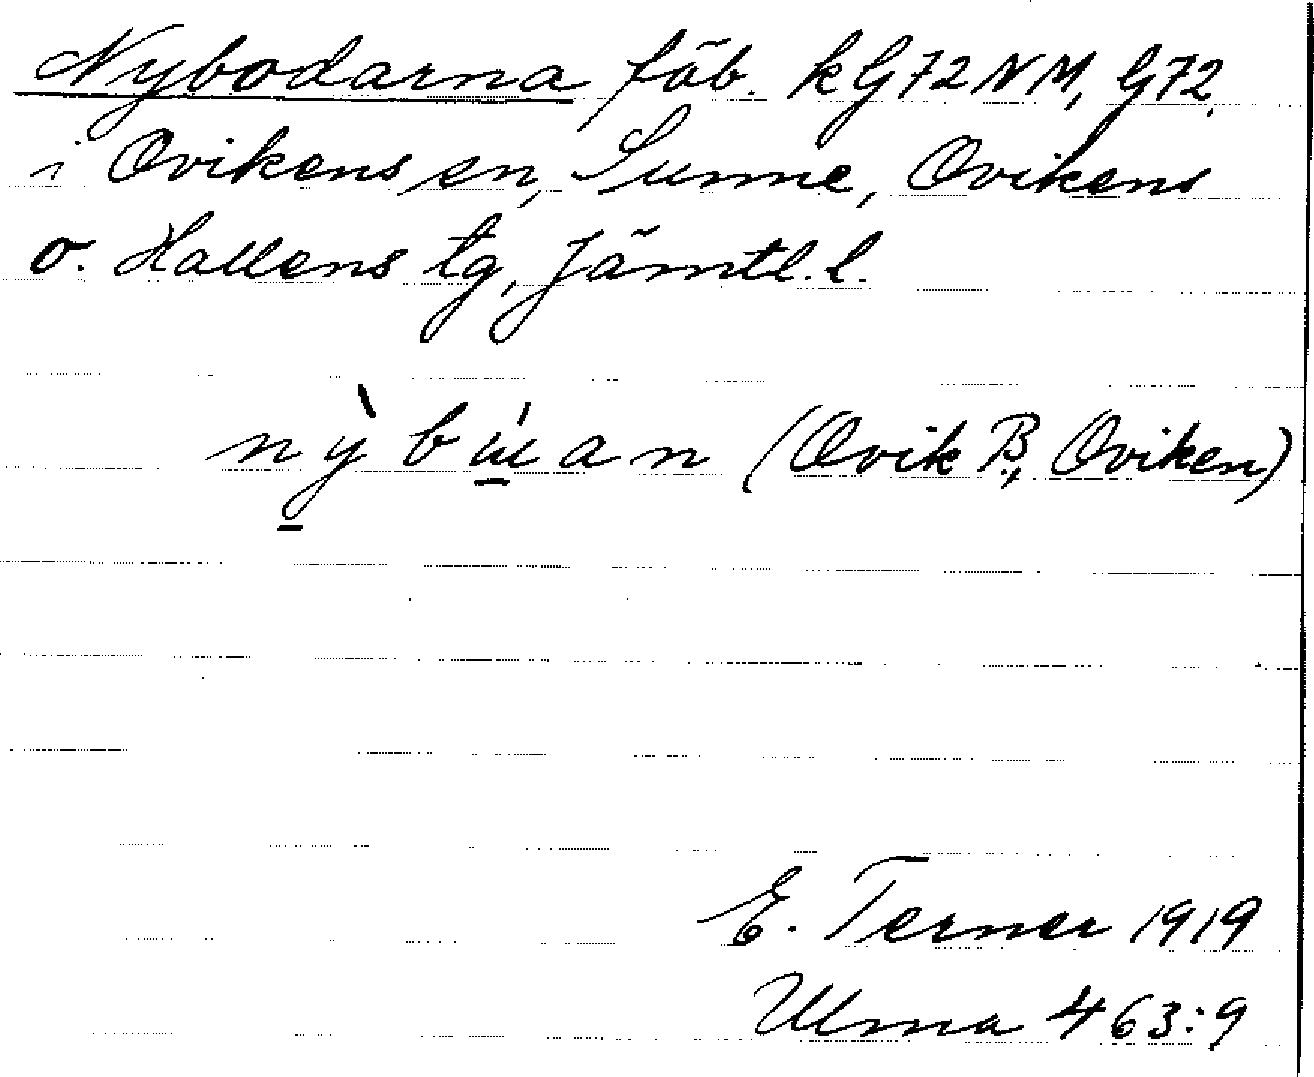 Nybodarna fäb. kG72NM, G72,
i Ovikens sn, Sunne, Ovikens
o. Hallens tg, Jämtl. l.
nỳ̠bú̠an (Ovik B., Oviken)
E. Terner 1919
Ulma 463:9